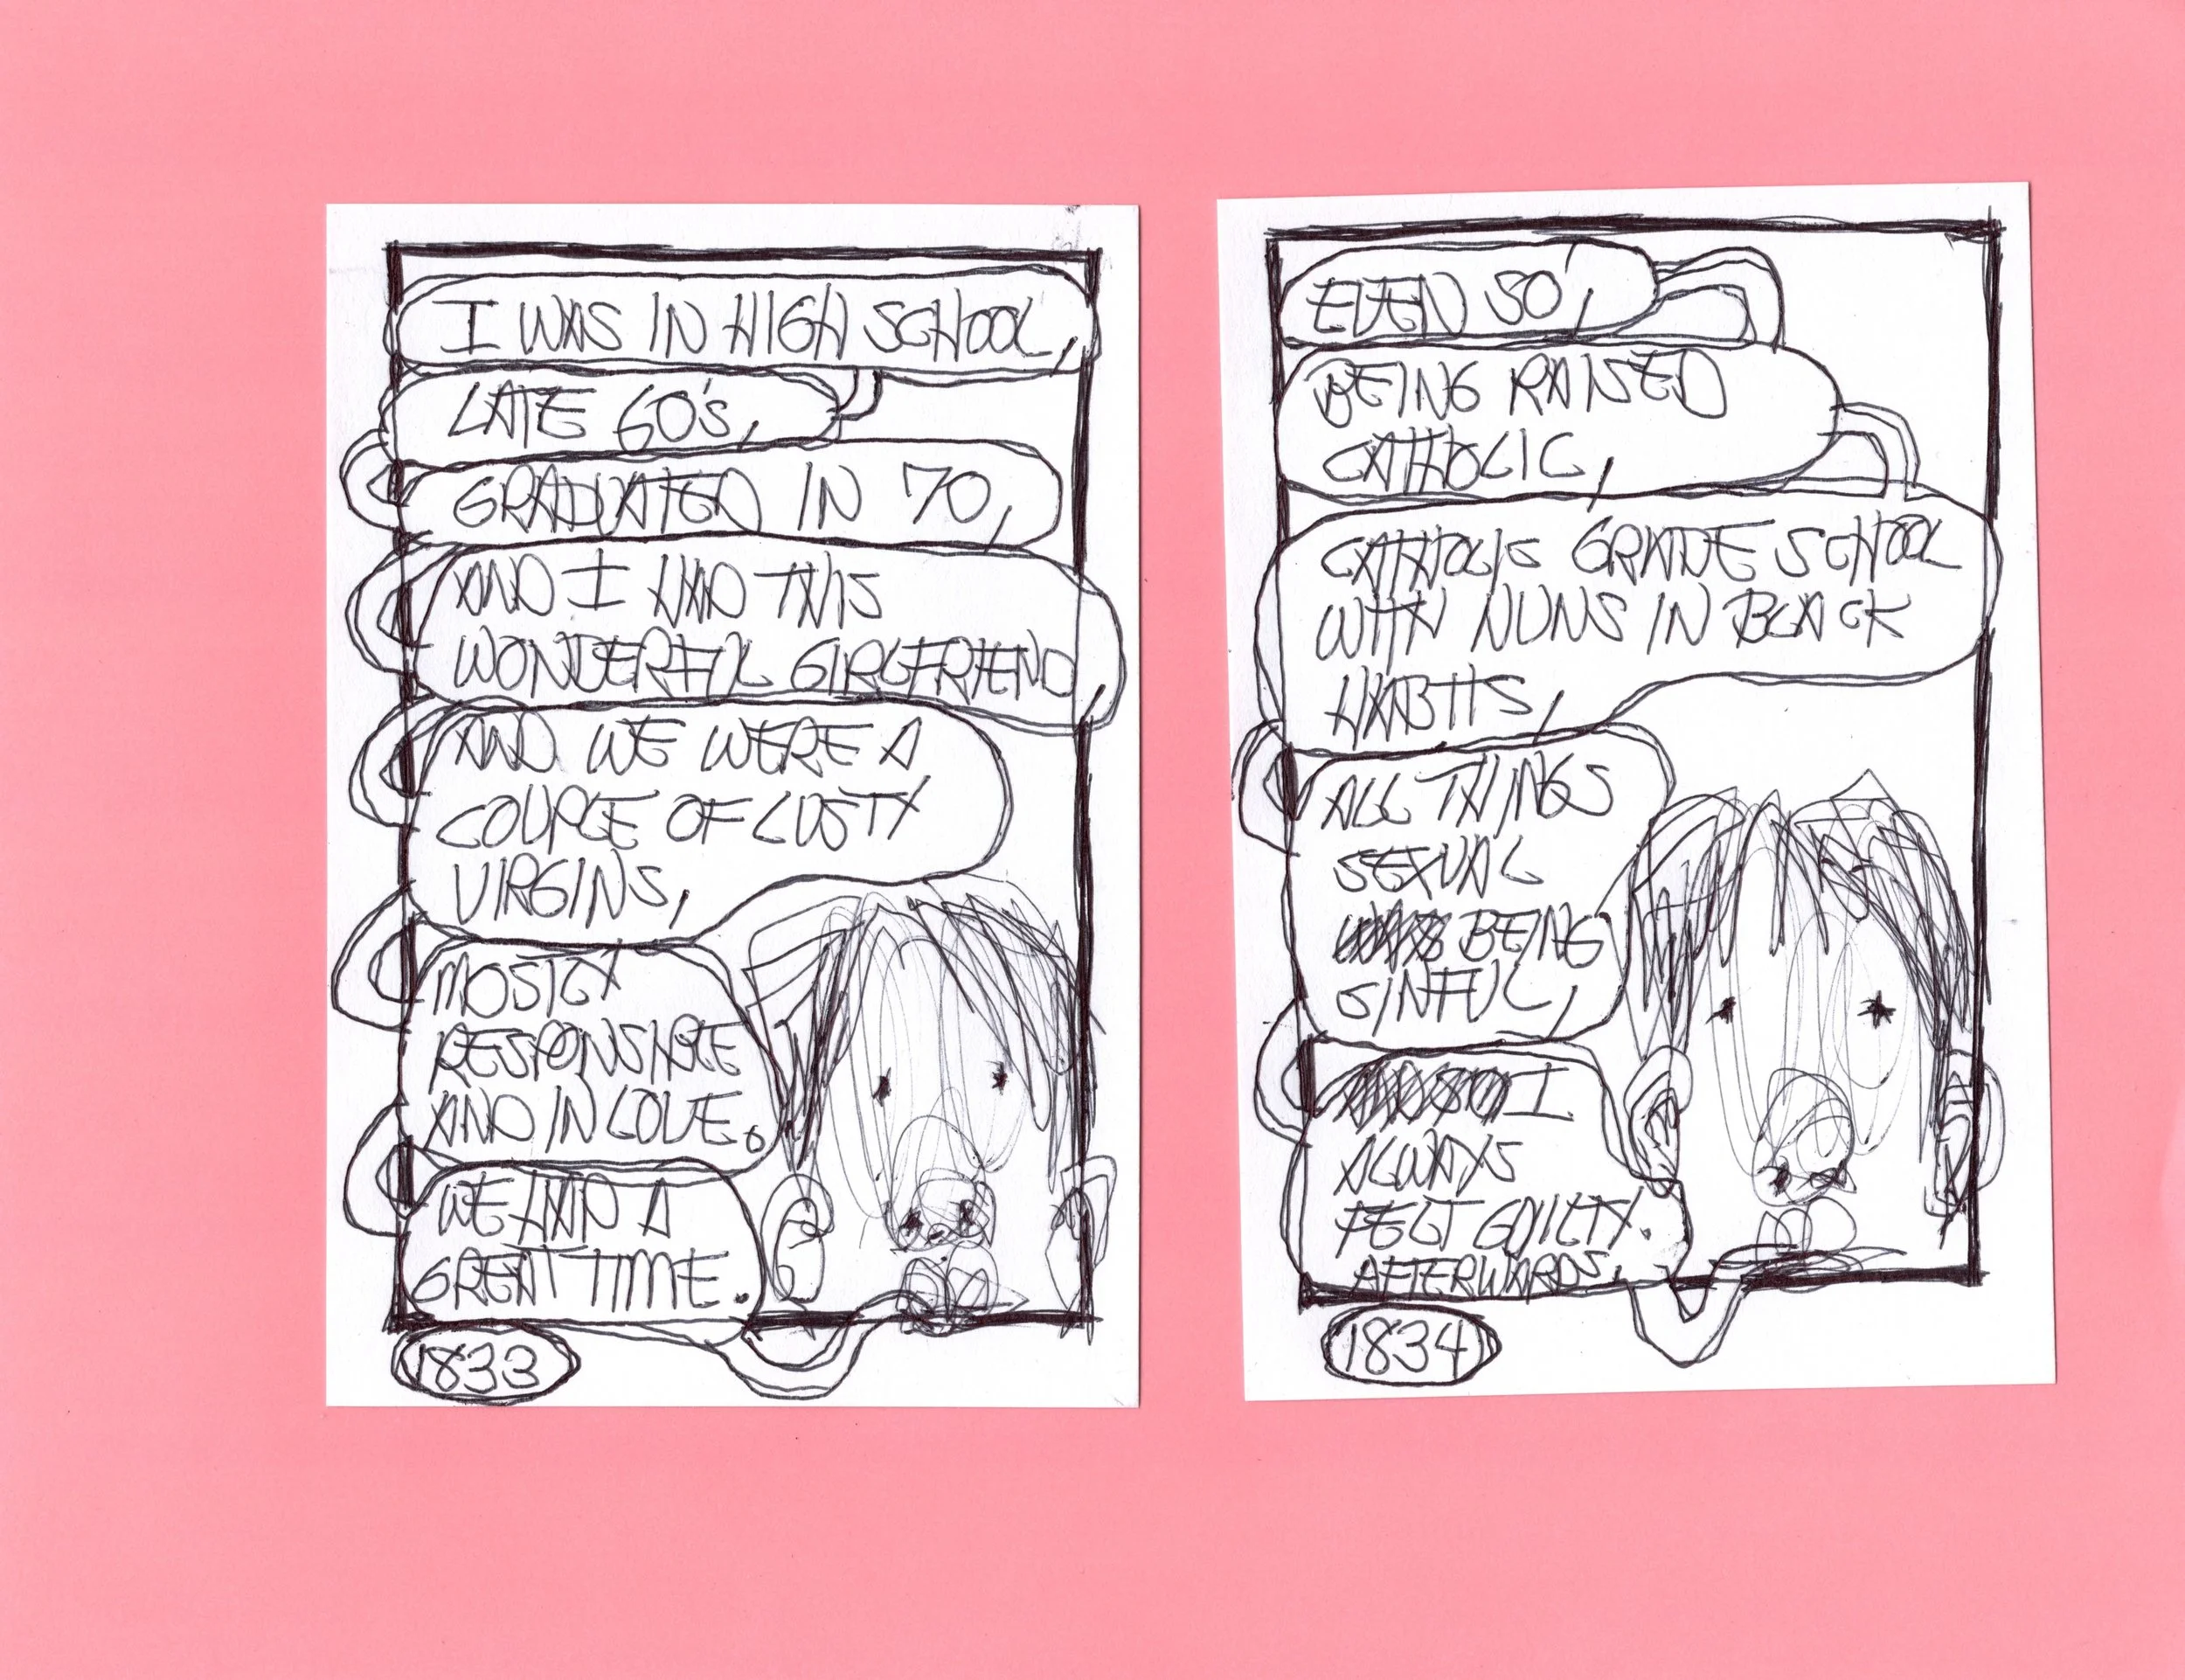 I WAS IN HIGH SCHOOL,
LATE 60's,
GRADUATED IN 70,
AND I HAD THIS
WONDERFUL GIRLFRIEND,
AND WE WERE A
COUPLE OF LUSTY
VIRGINS,
MOSTLY
RESPONSIBLE
AND IN LOVE.
WE HAD A
GREAT TIME.
1833
EVEN SO,
BEING RAISED
CATHOLIC,
CATHOLIC GRADE SCHOOL
WITH NUNS IN BLACK
HABITS,
ALL THINGS
SEXUAL
BEING
SINFUL,
I
ALWAYS
FELT GUILTY
AFTERWARDS.
1834